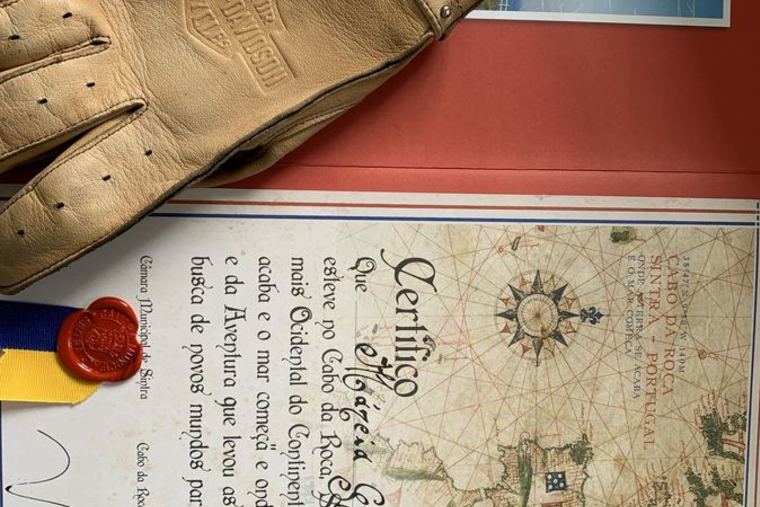 DAVIDSON
38º47'N 9º30'W 140M
CABO DA ROCA
SINTRA - PORTUGAL
ONDE A TERRA SE ACABA
E O MAR COMEÇA
Certifico
Que Márcia
esteve no Cabo da Roca,
mais Ocidental do Continent
acaba e o mar começa" e ond
e da Aventura que levou as
busca de novos mundos par
Câmara Municipal de Sintra
Cabo da Roc